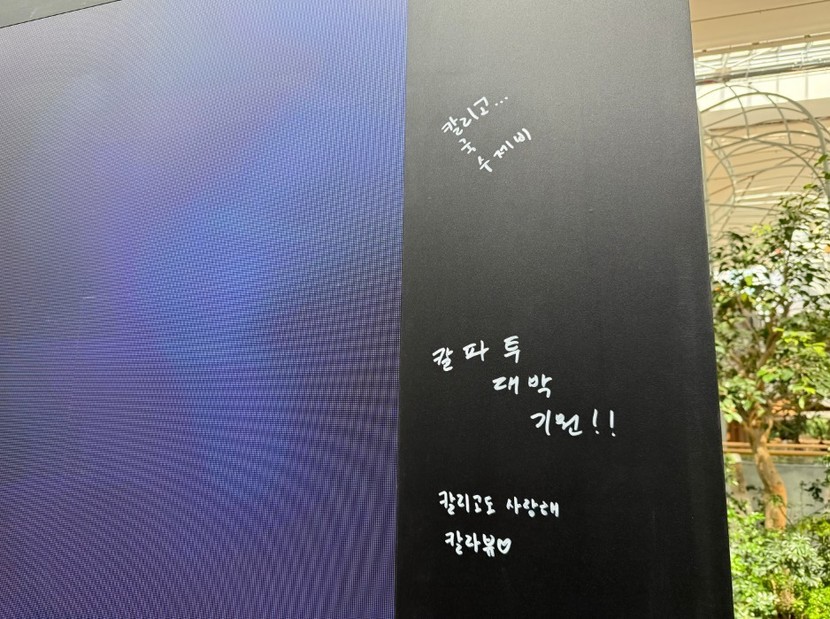 칼리고...
국
수제비
칼파투
대박
기원!!
칼리고도 사랑해
칼라뷰♡